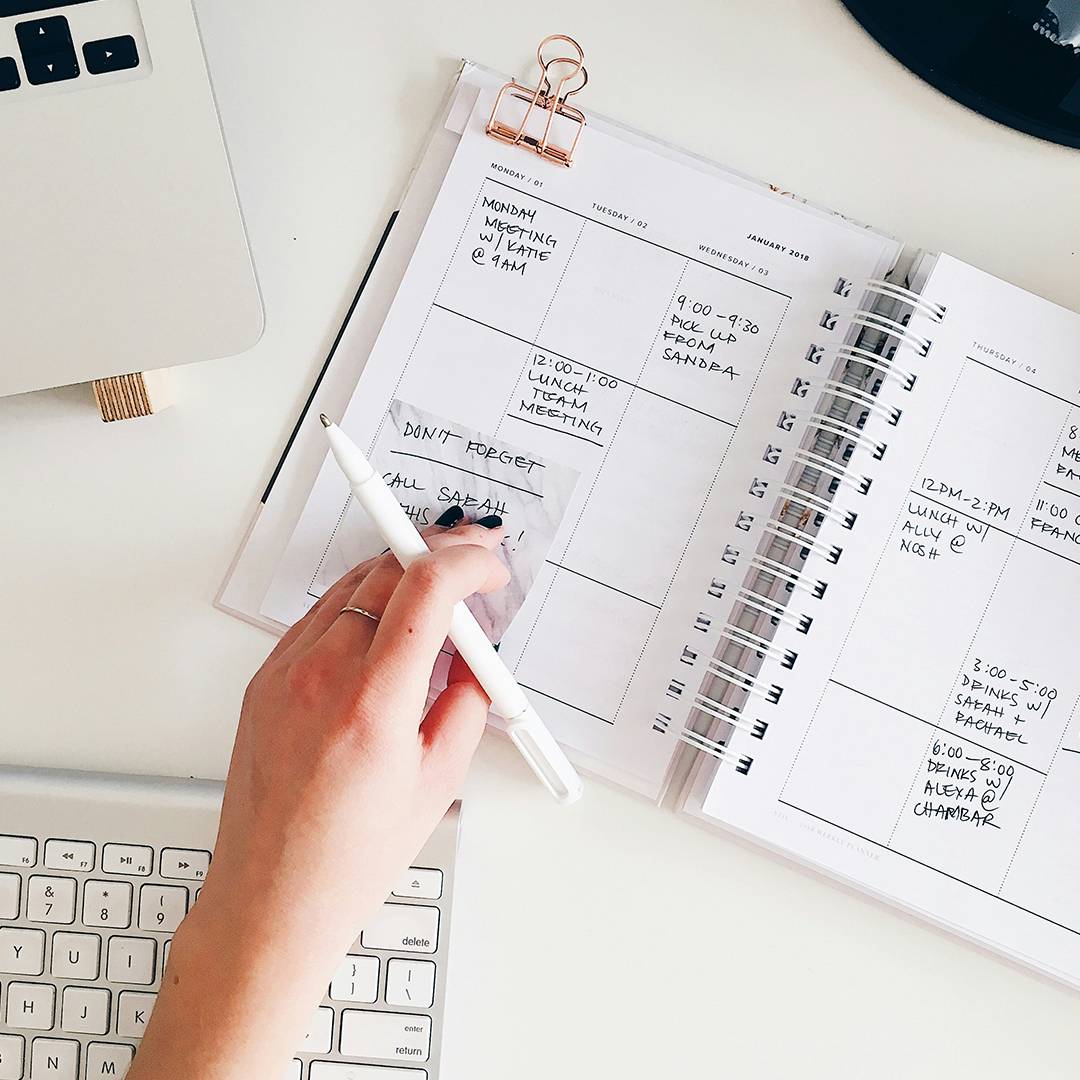 MONDAY / 01
MONDAY
MEETING
W/ KATIE
@ 9AM
TUESDAY / 02
12:00-1:00
LUNCH
TEAM
MEETING
JANUARY 2018
WEDNESDAY / 03
9:00-9:30
PICK UP
FROM
SANDRA
DON'T FORGET
CALL SARAH
THIS
THURSDAY / 04
12PM-2:PM
LUNCH W/
ALLY @
NOSH
8
ME
11:00
FRANC
3:00-5:00
DRINKS W/
SARAH +
RACHAEL
6:00-8:00
DRINKS W/
ALEXA @
CHAMBAR
WEEKLY PLANNER
F6
F7
F8
F9
& 7
* 8
( 9
delete
Y
U
I
} ]
| \
H
J
K
enter
return
N
M